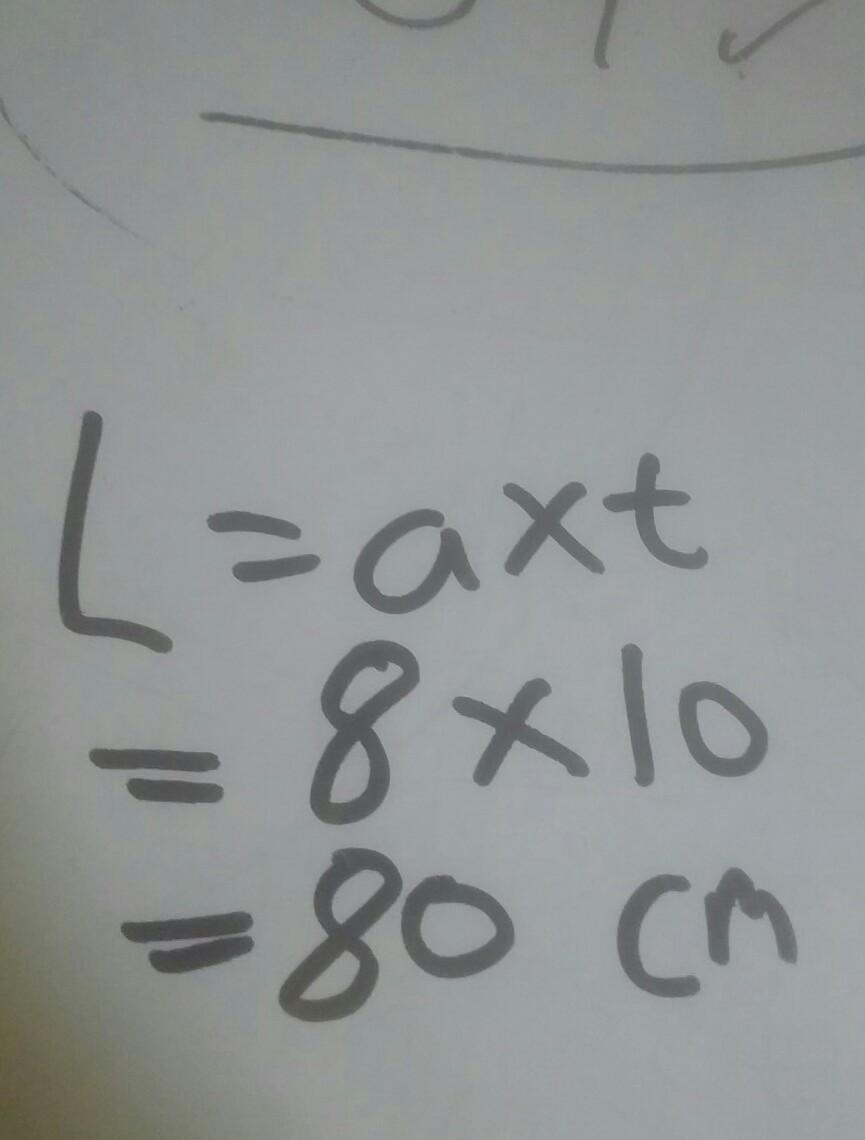 L = a x t
= 8 x 10
= 80 cm